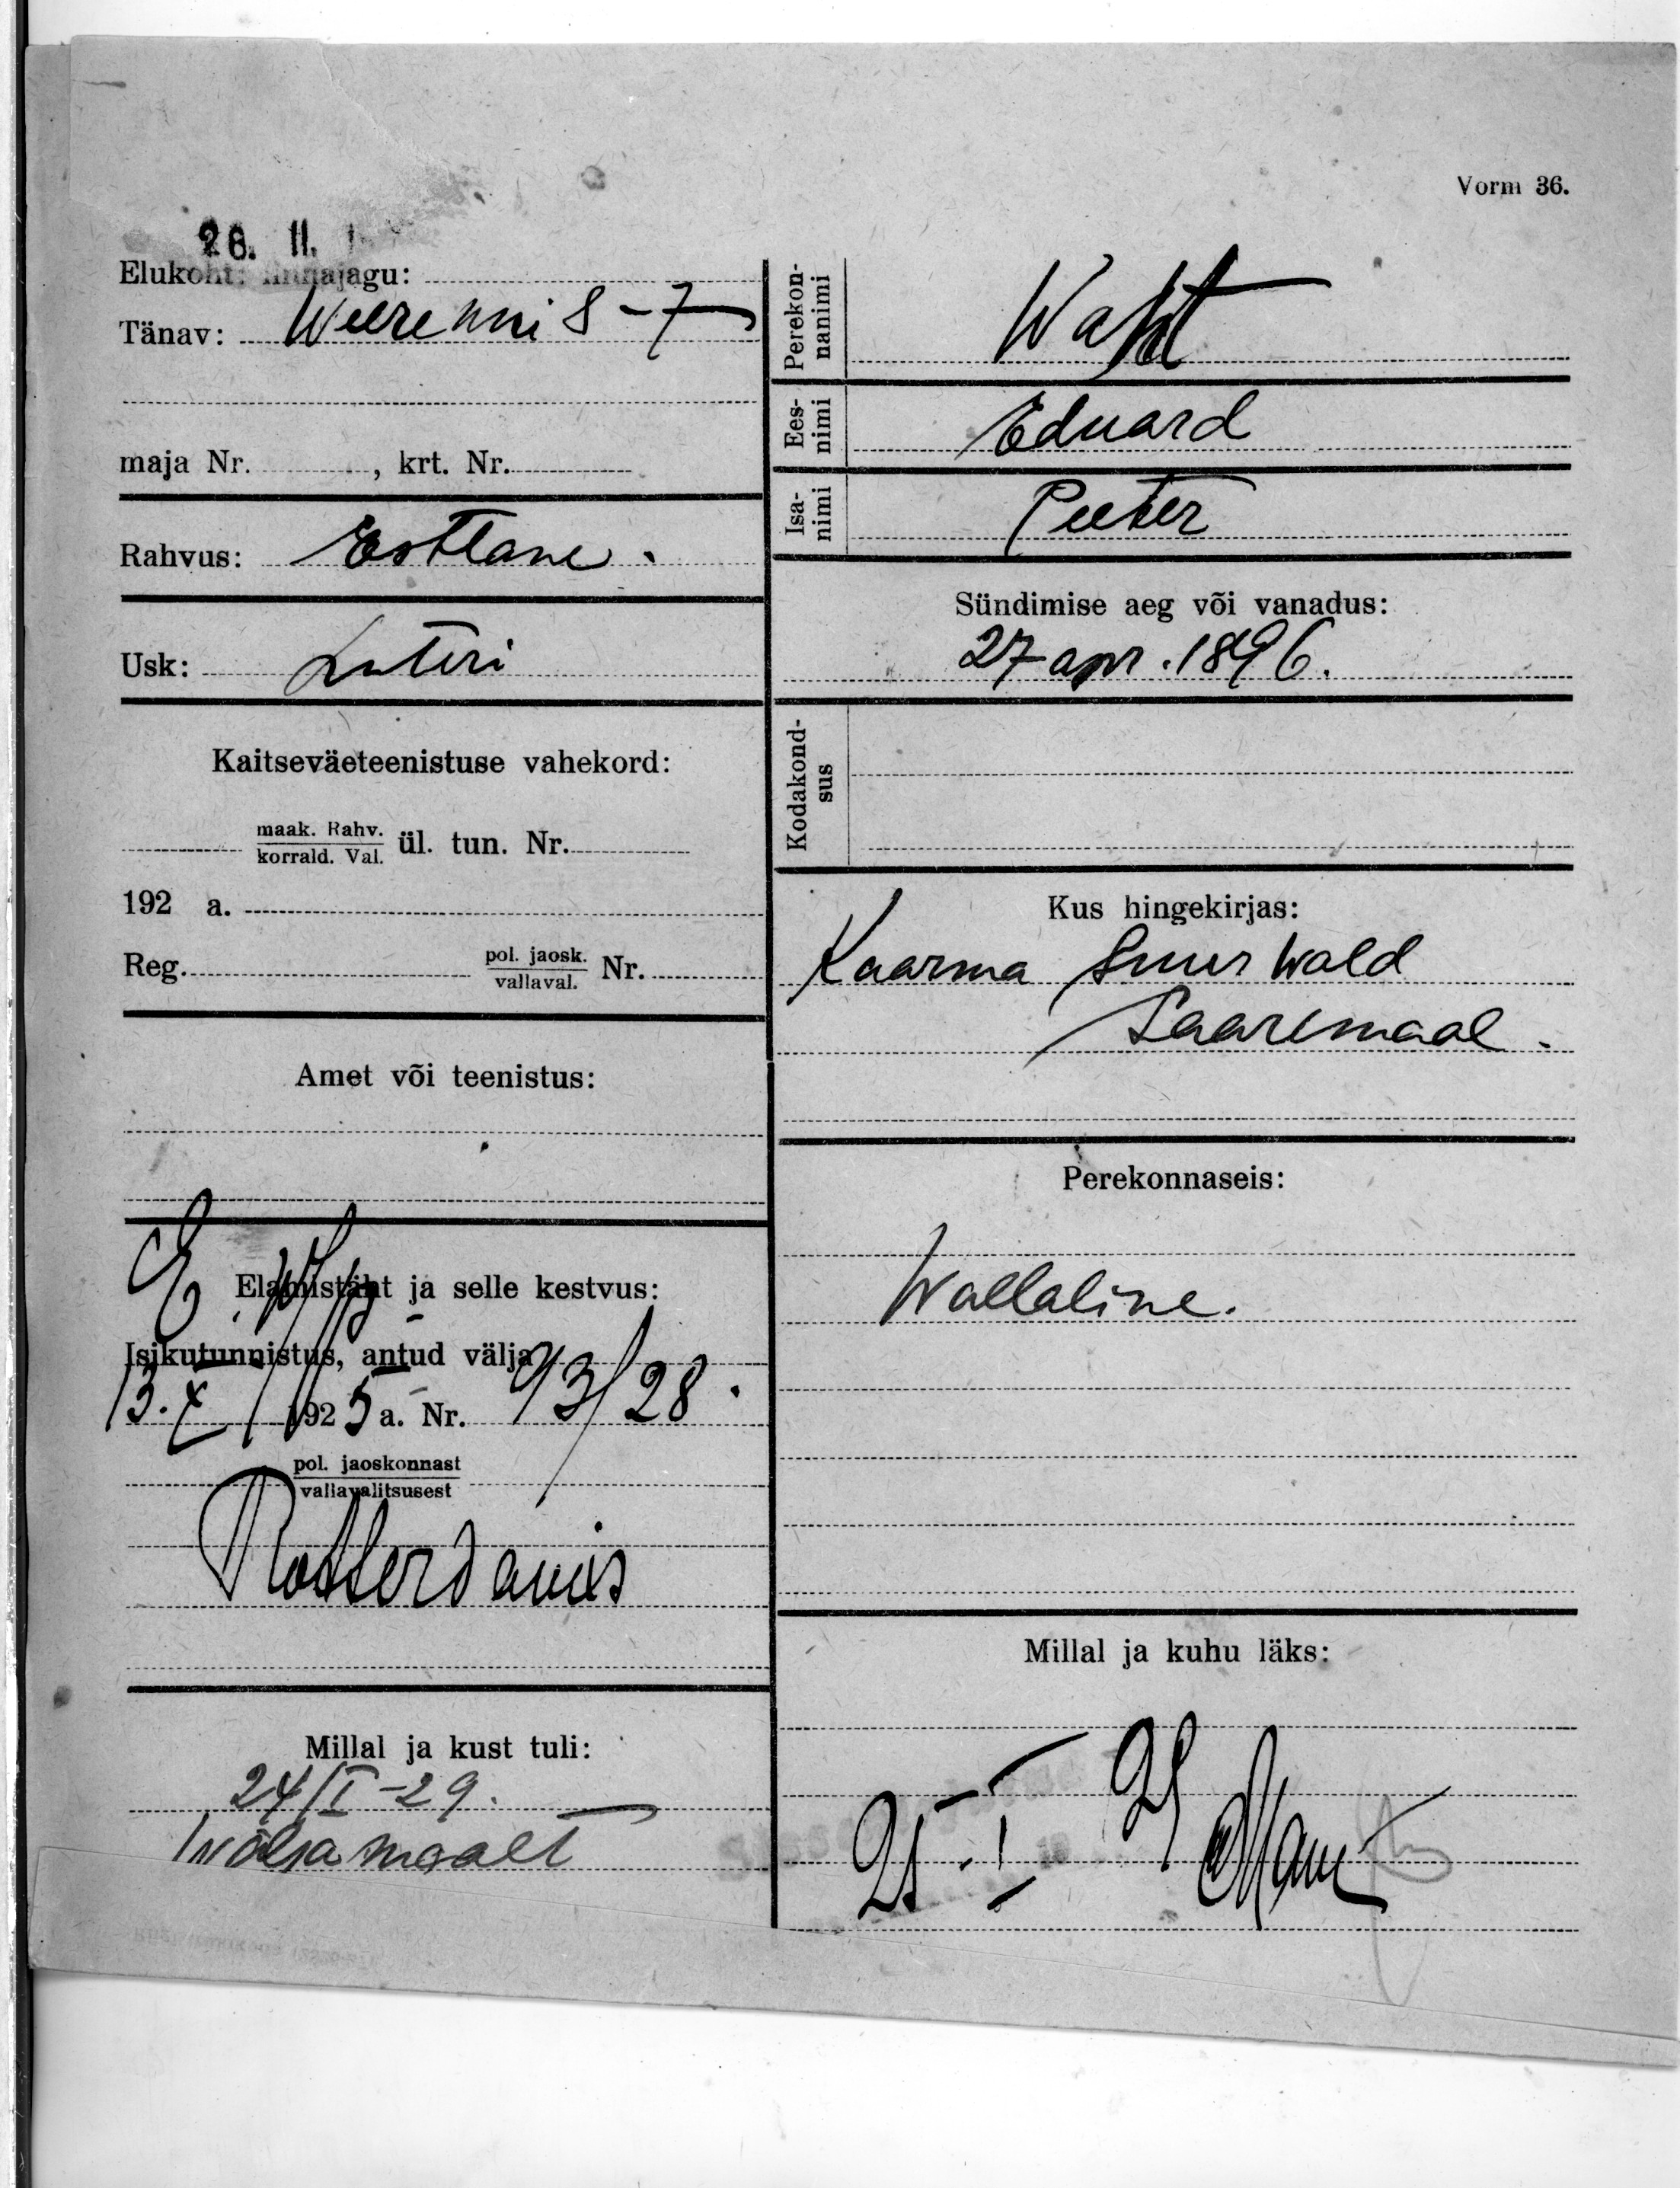 Vorm 36.
26. II.
Elukoht: linnajagu:
Tänav: Weerenni 8-7
maja Nr. , krt. Nr.
Rahvus: Eestlane.
Usk: Luteri
Kaitseväeteenistuse vahekord:
maak. Rahv.
korrald. Val. ül. tun. Nr.
192 a.
Reg. pol. jaosk.
vallaval. Nr.
Amet või teenistus:
Elamistäht ja selle kestvus:
Isikutunnistus, antud välja
13. X 1925 a. Nr. 93/28.
pol. jaoskonnast
vallavalitsusest
Rotterdamis
Millal ja kust tuli:
24/I-29.
Wäljamaalt
Perekonnanimi Waht
Eesnimi Eduard
Isanimi Peeter
Sündimise aeg või vanadus:
27 apr. 1896.
Kodakondsus
Kus hingekirjas:
Kaarma Suur Wald
Saaremaal.
Perekonnaseis:
Wallaline.
Millal ja kuhu läks:
25.I 29